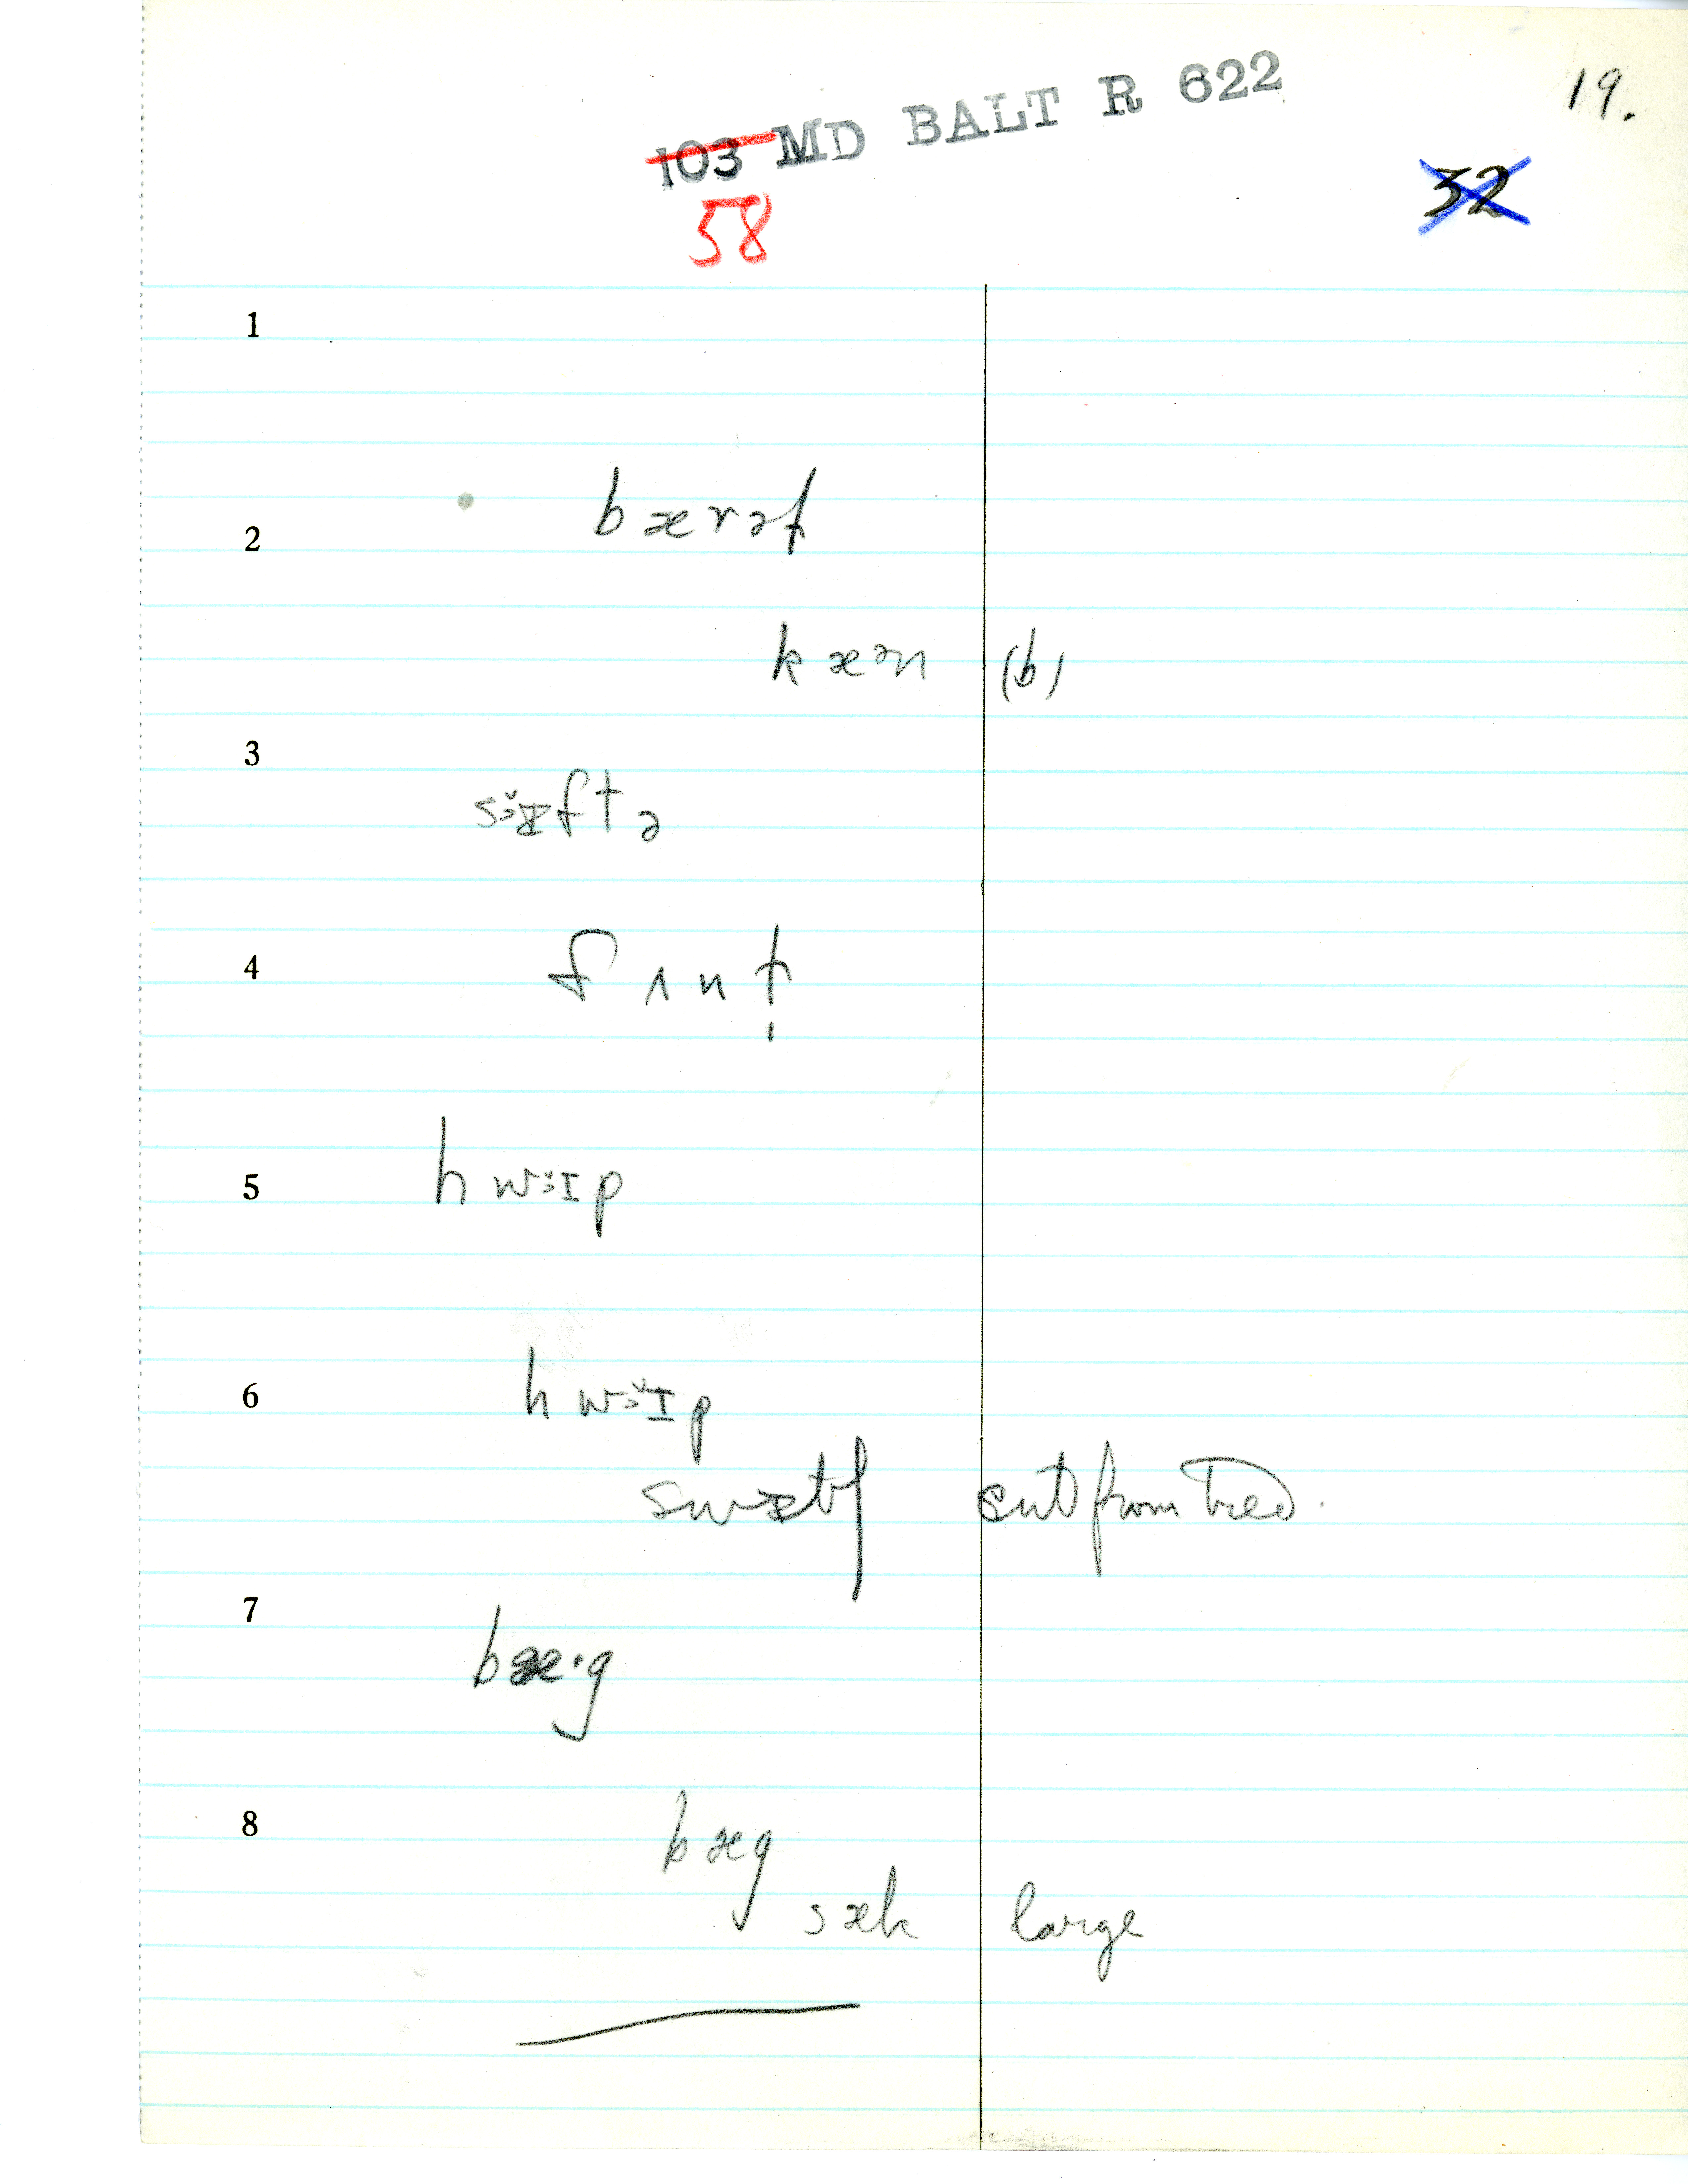 19.
103 MD BALT R 622
58
32
1
2 bærəl
kæən (b)
3
sɜ̆ɪftə
4 fʌnḷ
5 hwɜ̆ɪp
6 hwɜ̆ɪp
swɪtʃ cut from tree.
7
bæ·g
8 bæg
sæk large